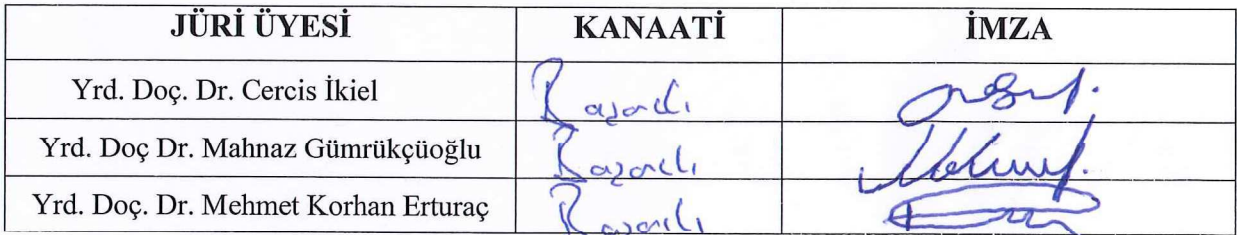 JÜRİ ÜYESİ KANAATİ İMZA
Yrd. Doç. Dr. Cercis İkiel Başarılı
Yrd. Doç Dr. Mahnaz Gümrükçüoğlu Başarılı
Yrd. Doç. Dr. Mehmet Korhan Erturaç Başarılı